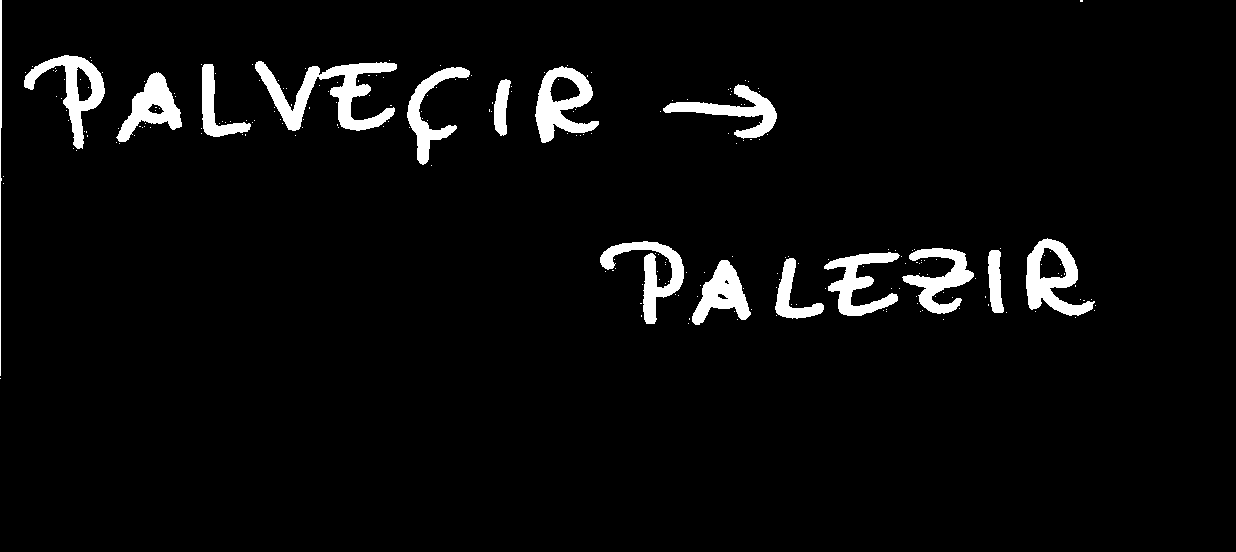 PALVEÇIR →
PALEZIR